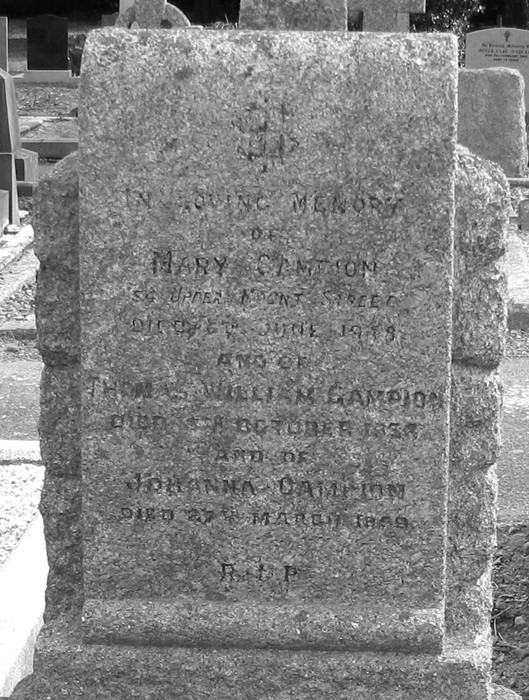 IHS
IN LOVING MEMORY
OF
MARY CAMPION
UPPER MOUNT STREET
DIED JUNE
AND OF
THOMAS WILLIAM CAMPION
DIED OCTOBER
AND OF
JOHANNA CAMPION
DIED 27TH MARCH
R.I.P